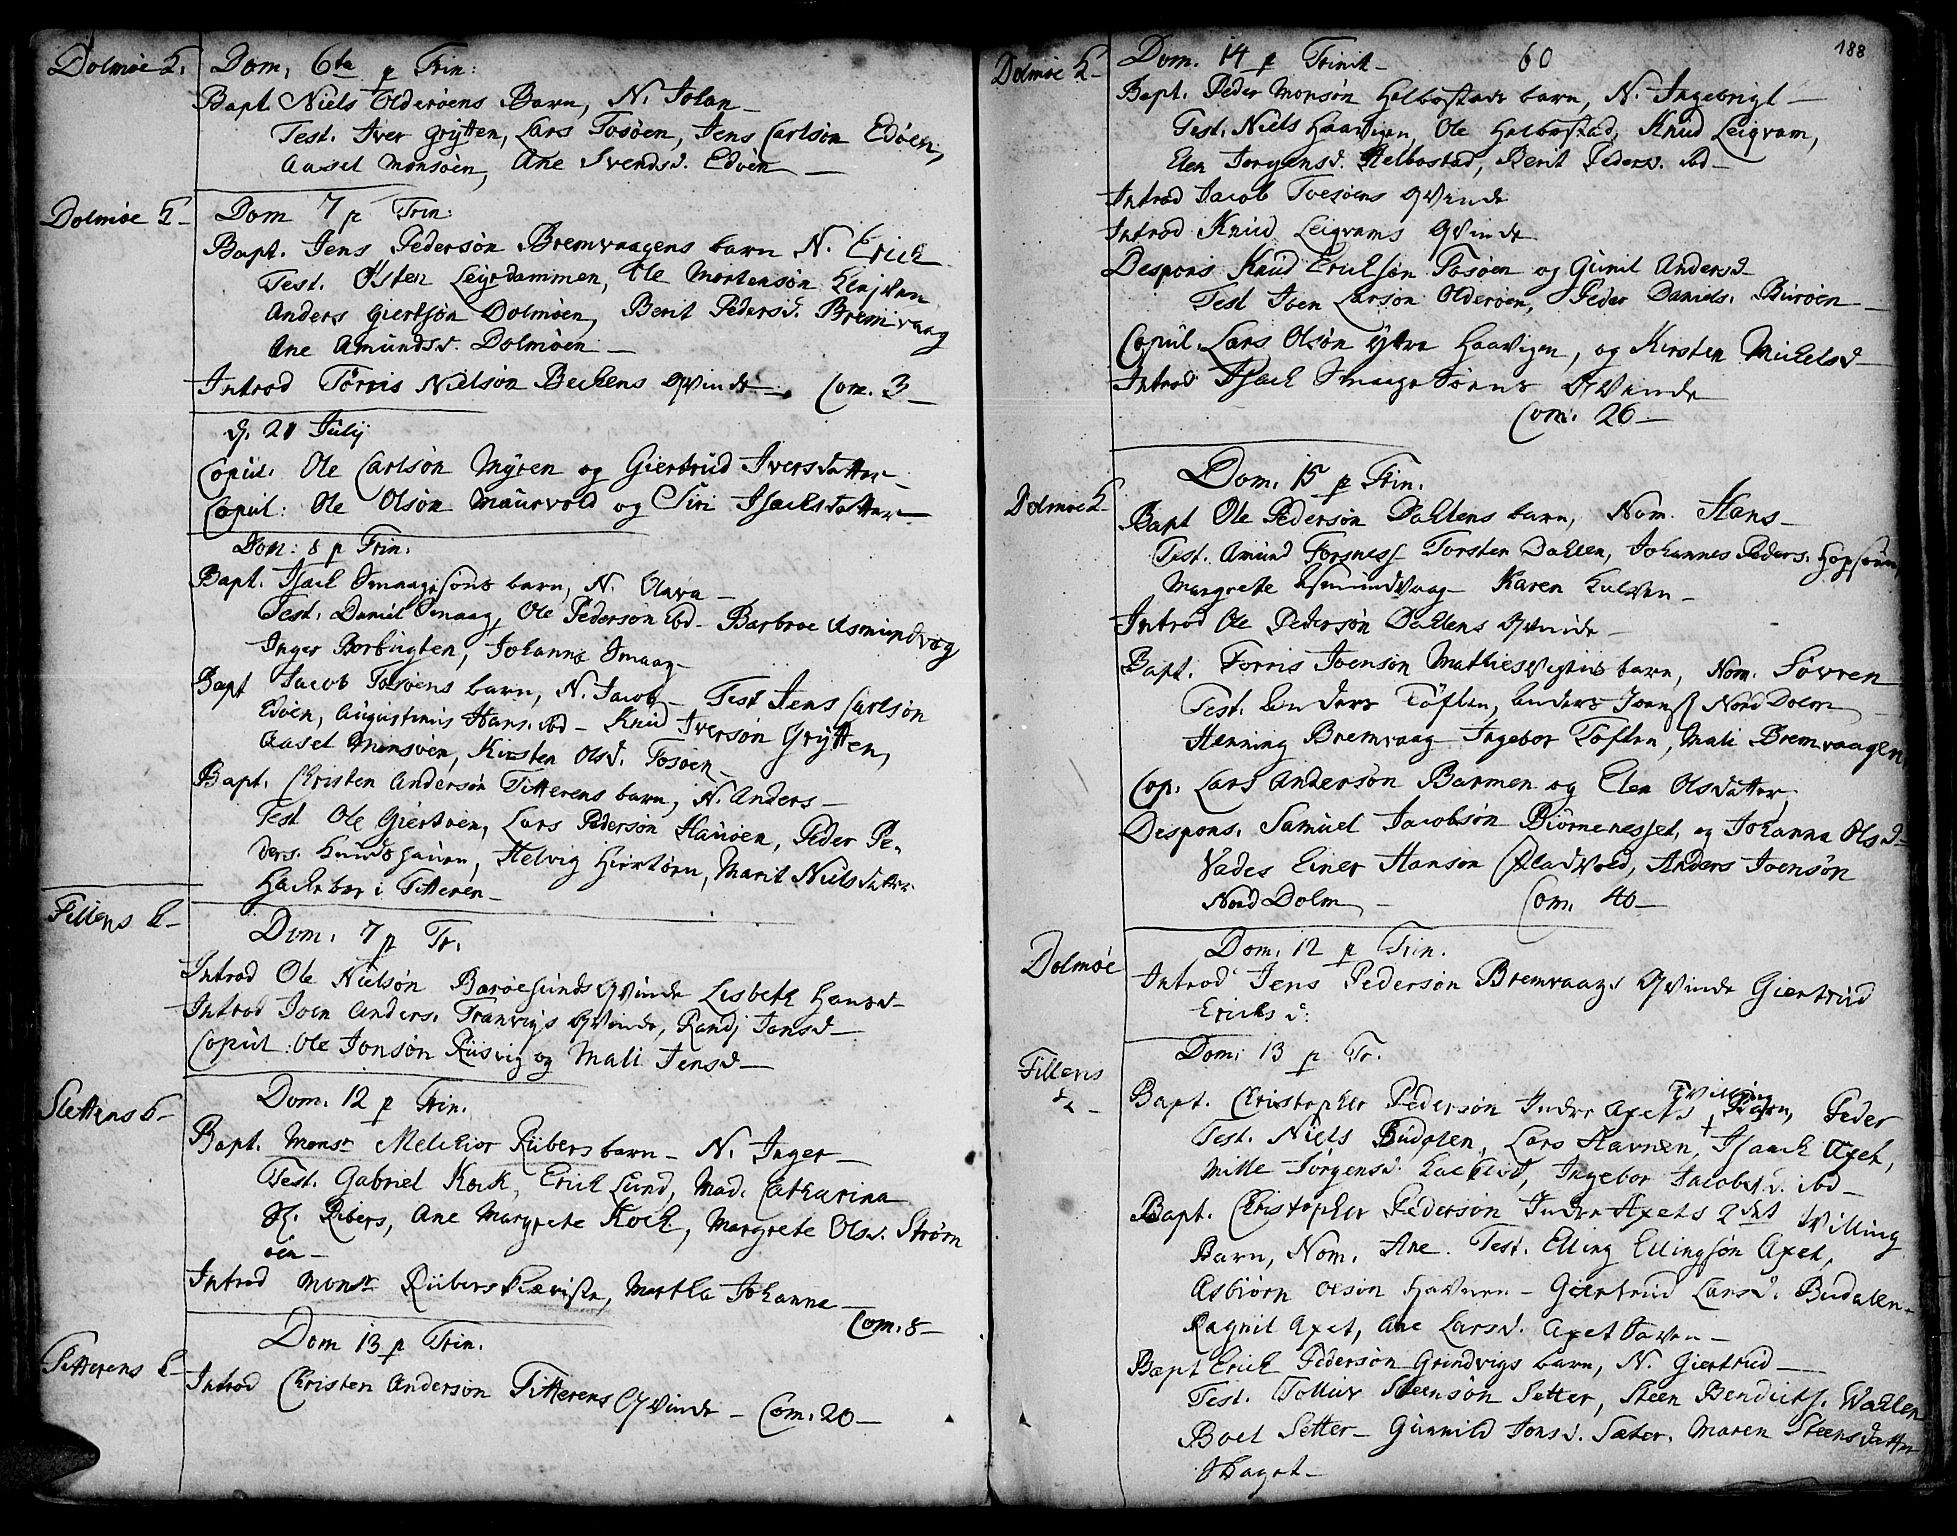 Dolmøe K. Dom. 6te p Trin:
Bapt Niels Olderøens Barn, N. Johan
Test. Iver Grÿtten, Lars Tosøen, Jens Carlsøn Edøen,
Aasel Monsøen, Ane Svendsd. Edøen
Dolmøe K Dom 7 p Trin:
Bapt. Jens Pedersøn Bremvaagens barn N. Erich
Test. Østen Leyrdammen, Ole Mortensøn
Anders Giertsøn Dolmøen, Berit Pedersd. Bremvaag
Ane Amundsd. Dolmøen
Introd Torris Nielsøn Bechens Qvinde. Com. 3
d. 21 Julij
Copul. Ole Carlsøn Myren og Giertrud Iversdatter
Copul: Ole Olsøn Maurvold og Siri Isachsdatter
Dom: 8 p Trin.
Bapt. Isach Smaagesøns barn, N. Olava
Test. Daniel Smaag, Ole Pedersøn Ibd - Barbroe Asmundvog
Inger Johanna Smaag
Bapt Jacob Tosøens barn, N. Jacob - Test Jens Carlsøn
Edøen, Augustinus Hans. ibd - Knud Iversøn Grÿtten,
Aasel Monsøen, Kirsten Olsd. Tosøen
Bapt. Christen Andersøn Titterens barn, N. Anders
Test Ole Giertøen, Lars Pedersøn Hauøen, Peder Pe-
ders. Knudshauen, Helvig Hiertøen, Marit Nielsdatter
i Titteren
Fillens K Dom. 7 p Tr.
Introd Ole Nielsøn Barøesunds Qvinde Lisbeth Hansd
Introd Joen Anders. Tranvigs Qvinde, Randj Jonsd
Copul: Ole Jonsøn Risvig og Mali Jensd
Slettens K Dom. 12 p Trin.
Bapt. Monsr Melchior Rübers barn - N. Inger
Test. Gabriel Kock, Erich Lund, Mad. Catharina
Sl. Ribers, Ane Margrete Koch, Margrete Olsd. Strøm
øen
Introd Monsr Rübers Kiæriste, Martha Johanna
Com. 8
Titterens K Dom 13 p Trin.
Introd Christen Andersøn Titterens Qvinde - Com. 20
188
Dolmøe K Dom. 14 p Trinit 60
Bapt. Peder Monsøn Helbostads barn, N. Ingebrigt
Test. Niels Haavigen, Ole Helbostad, Knud Leigvam,
Elen Jørgensd. Helbostad, Berit Peders. ibd
Introd Jacob Toesøens Qvinde
Introd Knud Leigvams Qvinde
Despons Knud Erichsøn Tosøen og Gunil Andersd
Test Joen Larsøn Olderøen, Peder Daniels. Burøen
Copul. Lars Olsøn Ytre Haavigen, og Kirsten Michelsd
Introd Isach Smaagesøens Qvinde
Com. 26
Dolmøe K Dom. 15 p Trin.
Bapt Ole Pedersøn Dahlens barn, Nom. Hans
Test. Amund Forsness Torsten Dahlen, Johannes Peders. Hopsøen,
Margrete Asmundvaag - Karen Kulven
Introd Ole Pedersøn Dahlens Qvinde
Bapt. Torris Joensøn Mathiesvigens barn, Nom. Søvren
Test. Anders Töften, Anders Joenss Nord Dolm
Henning Bremvaag Ingebor Toften, Mali Bremvaagen
Cop. Lars Andersøn Barmen og Elen Olsdatter
Despons. Samuel Jacobsøn Biørnenesset, og Johanna Olsd
Vades Einer Hansøn Fladvold, Anders Joensøn
Nord Dolm Com. 40
Dolmøe Dom. 12 p Trin.
Introd Jens Pedersøn Bremvaags Qvinde Giertrud
Erichsd:
Fillens K Dom: 13 p Tr.
Bapt. Christopher Pedersøn Indre Axets Tvilling Barn, Peder
Test. Niels Budalen, Lars Havnen, Isaach Axet,
Mille Jørgensd. Ingebor Jacobsd. ibd
Bapt. Christopher Pedersøn Indre Axets 2det Tvilling
Barn, Nom. Ane. Test. Elling Ellingsøn Axet,
Asbiørn Olsøn Havnen - Giertrud Larsd. Budalen
Ragnil Axet, Ane Larsd. Axethaven
Bapt Erich Pedersøn Grindvigs barn, N. Giertrud
Test. Tollev Steensøn Setter, Steen Bendicts. Wahlen
Boel Setter - Gunnild Jonsd. Sæter. Maren Steensdatter
Shaget